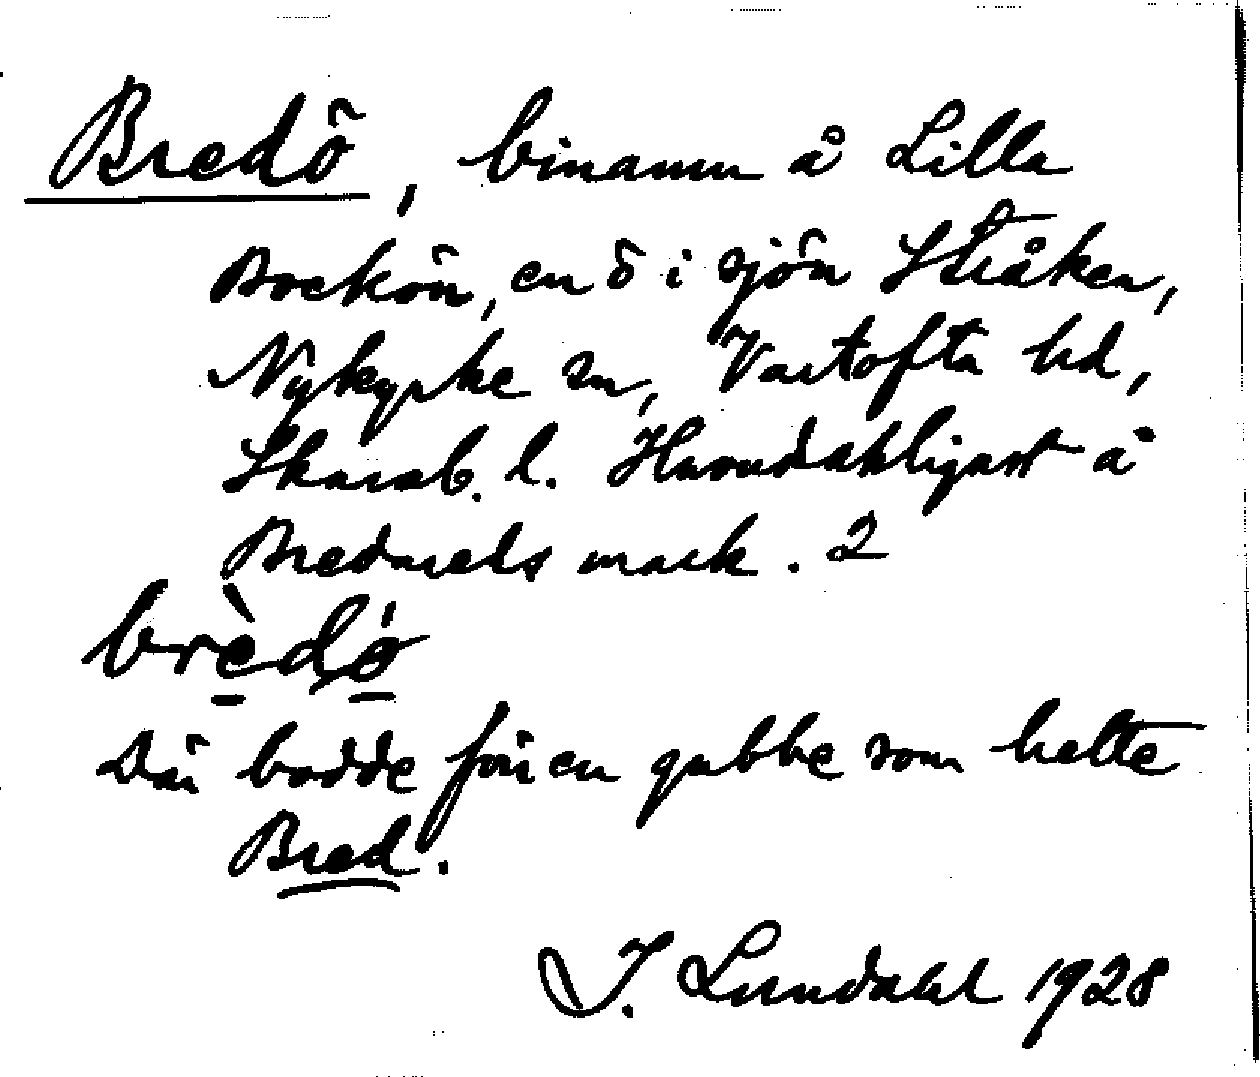 Bredö, binamn å Lilla
Bockön, en ö i sjön Stråken,
Nykyrke sn, Vartofta hd,
Skarab. l. Huvudsakligast å
Bredarels mark. 2
brèdö́
Där bodde förr en gubbe som hette
Bred.
I. Lundahl 1928